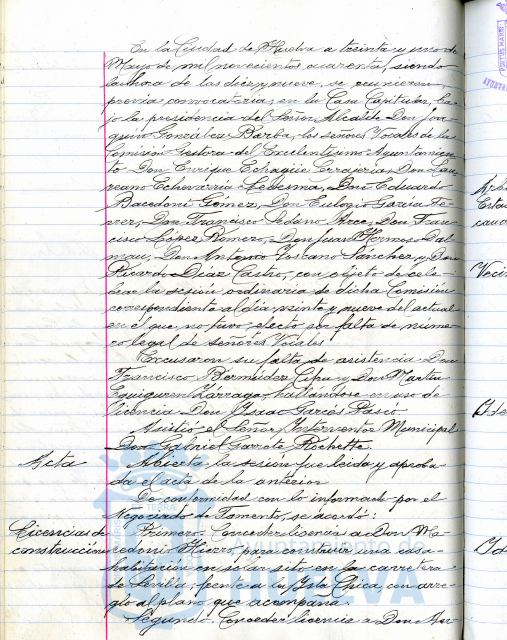 En la Ciudad de Huelva a treinta y uno de
Mayo de mil novecientos cuarenta, siendo
la hora de las diez y nueve, se reunieron
previa convocatoria, en la Casa Capitular, ba-
jo la presidencia del Señor Alcalde Don Joa-
quín González Barba, los señores Vocales de la
Comisión Gestora del Excelentísimo Ayuntamien-
to Don Enrique Echagüe Errajeria, Don Lau-
reano Echevarría Ledesma, Don Eduardo
Bacedoni Gomez, Don Eulogio García Pé-
rez, Don Francisco Sedano Arce, Don Fran-
cisco López Romero, Don Juan Hermoso Dal-
mau, Don Antonio Toscano Sánchez, y Don
Ricardo Díaz Castro, con objeto de cele-
brar la sesión ordinaria de dicha Comisión
correspondiente al día veinte y nueve del actual
en el que no tuvo efecto por falta de núme-
ro legal de señores Vocales
Excusaron su falta de asistencia Don
Francisco Bermúdez y Don Martín
Eguiguren Larraga, hallándose en uso de
licencia Don Isaac García
Asistió el Señor Interventor Municipal
Don Gabriel Garrote Rochette.
Acta Abierta la sesión fue leida y aproba-
da el acta de la anterior
De conformidad con lo informado por el
Negociado de Fomento, se acordó:
Licencias de Primero. Conceder licencia a Don Ma-
construcción cedonio Hierro, para construir una casa-
habitación en solar sito en la carretera
de Sevilla, frente a la Isla Chica, con arre-
glo al plano que acompaña.
Segundo. Conceder licencia a Don Mar
Ayuntamiento de
HUELVA